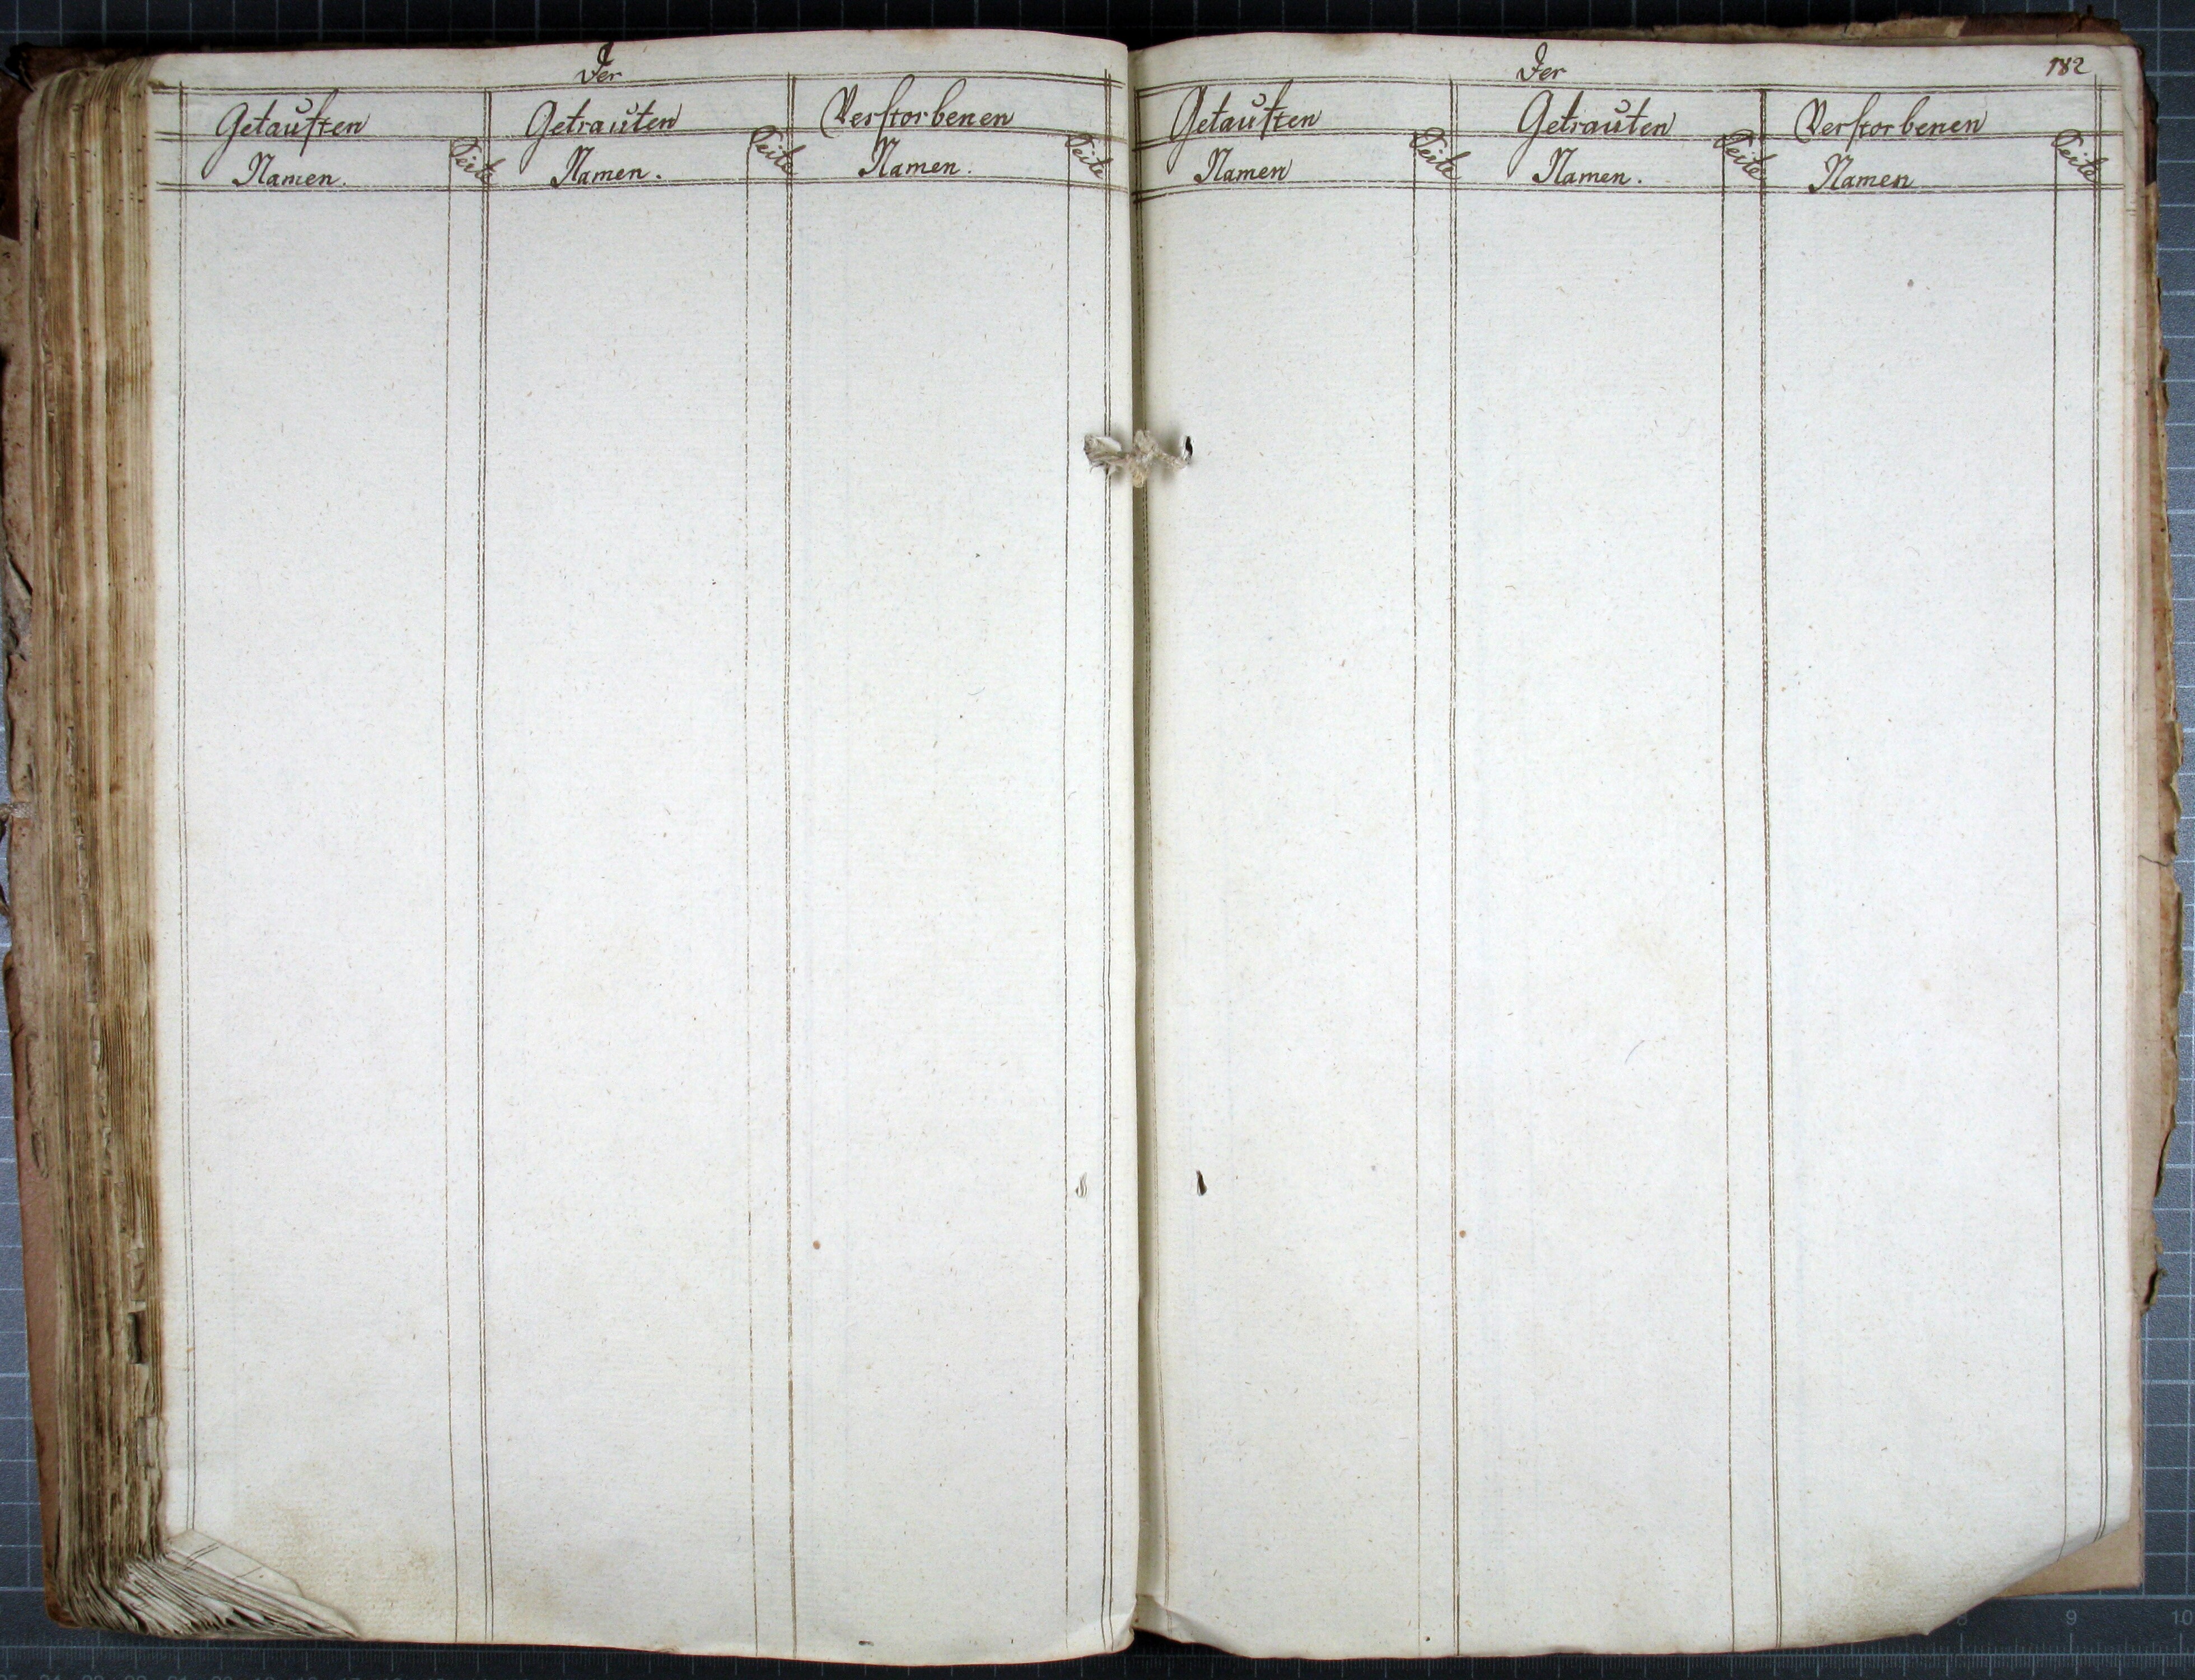 Der
Getauften Getrauten Verstorbenen
Namen. Seite Namen. Seite Namen. Seite
Der 182
Getauften Getrauten Verstorbenen
Namen Seite Namen. Seite Namen Seite
8 9 10